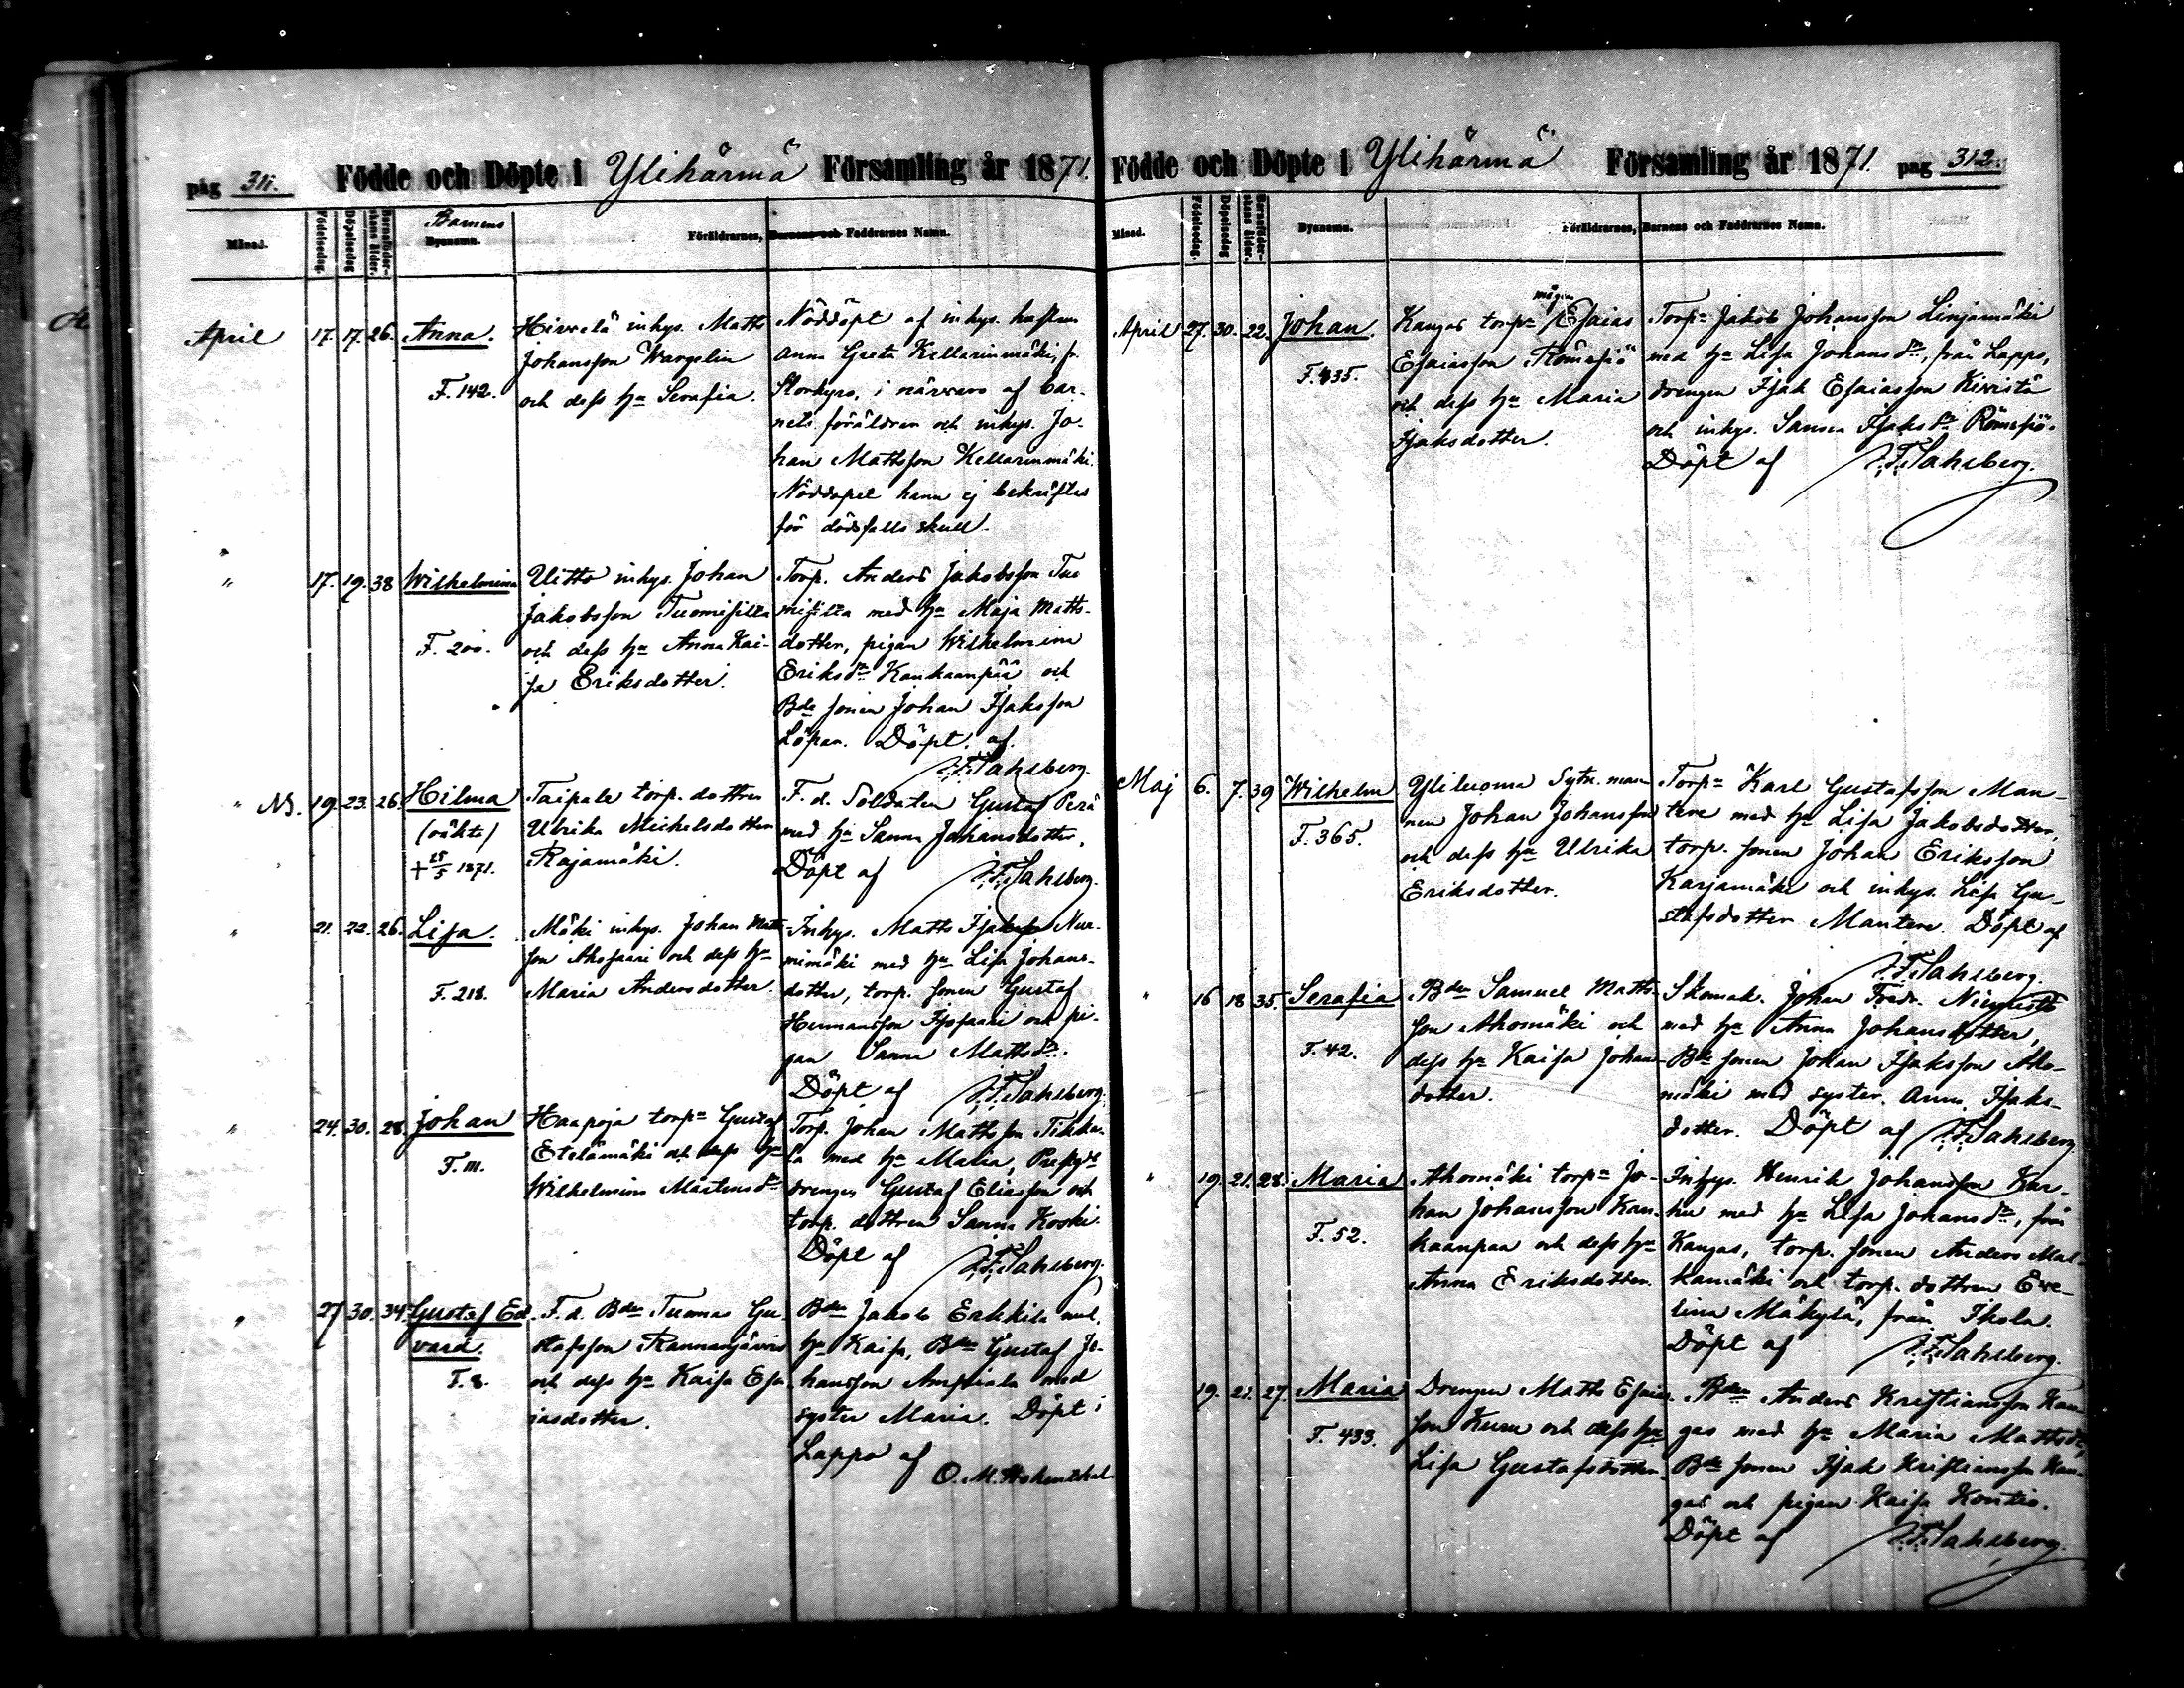 pag 311. Födde och Döpte i Ylihärmä Församling år 1871.
Månad. Födelsedag. Döpelsedag Barnaföderskans ålder. Barnens Bysnamn. Föräldrarnes, Barnens och Faddrarnes Namn.
April 17. 17. 26. Anna.
F. 142.
Hirvelä inhys. Matts
Johansson Wargelin
och dess hu Serafia.
Nöddöpt af inhys. hustrun
Anna Greta Kellarinmäki, fr.
Storkyro, i närvaro af bar-
nets föräldrar och inhys. Jo-
han Mattsson Kellarinmäki.
Nöddopet hann ej bekräftas
för dödsfalls skull.
" 17. 19. 38 Wilhelmina
F. 200.
Uitto inhys. Johan
Jakobsson Tuomisilta
och dess hu Anna Kai-
sa Eriksdotter.
Torp. Anders Jakobsson Tuo
misilta med hu Maja Matts-
dotter, pigan Wilhelmina
Eriksdr Kankaanpää och
Bde sonen Johan Isaksson
Löpan. Döpt af
J. F. Sahlberg.
" 19. 23. 26. Hilma
(oäkta)
+ 25/5 1871.
Taipale torp. dottren
Ulrika Michelsdotter
Rajamäki.
F. d. Soldaten Gustaf Perä
med hu Sanna Johansdotter.
Döpt af J. F. Sahlberg.
" 21. 22. 26. Lisa.
F. 218.
Mäki inhys. Johan Matts-
son Ahosaari och dess hu
Maria Andersdotter.
Inhys. Matts Isaksson Nur-
mimäki med hu Lisa Johans-
dotter, torp. sonen Gustaf
Hermansson Isosaari och pi-
gan Sanna Mattsdr.
Döpt af J. F. Sahlberg.
" 24. 30. 28. Johan
F. 111.
Haapoja torp. Gustaf
Etelämäki och dess hu
Wilhelmina Mårtensdr
Torp. Johan Mattsson Tikka-
la med hu Maria,
drengen Gustaf Eliasson och
torp. dottren Sanna Koski.
Döpt af J. F. Sahlberg.
" 27 30. 34. Gustaf Ed-
vard.
F. 8.
F. d. Bden Tuomas Gu-
stafsson Rannanjärvi
och dess hu Kaisa Esa
iasdotter.
Bden Jakob Erkkilä med
hu Kaisa, Bden Gustaf Jo-
hansson Ampiala med
syster Maria. Döpt i
Lappo af
O. M. Hohenthal
Födde och Döpte i Ylihärmä Församling år 1871. pag 312.
Månad. Födelsedag. Döpelsedag Barnaföderskans ålder. Bysnamn. Föräldrarnes, Barnens och Faddrarnes Namn.
April 27. 30. 22. Johan.
F. 435.
mågen
Kangas torp. Esaias
Esaiasson Römspiö
och dess hu Maria
Isaksdotter.
Torp. Jakob Johansson Linjamäki
med hu Lisa Johansdr, från Lappo,
drengen Isak Esaiasson Kivistö
och inhys. Sanna Isaksdr Römspiö.
Döpt af J. F. Sahlberg.
Maj 6. 7. 39 Wilhelm
F. 365.
Yliluoma Sytn. man-
nen Johan Johansson
och dess hu Ulrika
Eriksdotter.
Torp. Karl Gustafsson Man-
tere med hu Lisa Jakobsdotter,
torp. sonen Johan Eriksson
Karjamäki och inhys. Lisa Gu-
stafsdotter Mantere. Döpt af
J. F. Sahlberg.
" 16 18 35. Serafia
F. 42.
Bden Samuel Matts-
son Ahomäki och
dess hu Kaisa Johans-
dotter.
Skomak. Johan Fredr. Nieguist
med hu Anna Johansdotter,
Bde sonen Johan Isaksson Aho-
mäki med syster Anna Isaks-
dotter. Döpt af J. F. Sahlberg
" 19. 21. 28. Maria
F. 52.
Ahomäki torp. Jo-
han Johansson Kan-
kaanpaa och dess hu
Anna Eriksdotter.
Inhys. Henrik Johansson Kur-
hu med hu Lisa Johansdr, från
Kangas, torp. sonen Anders Mal-
kamäki och torp. dottren Eve-
lina Mäkylä, från Ikola.
Döpt af J. F. Sahlberg.
19. 21. 27. Maria
F. 433.
Drengen Matts Esaias-
son Kuru och dess hu
Lisa Gustafsdotter.
Bden Anders Kristiansson Kan-
gas med hu Maria Mattsdr,
Bde sonen Isak Kristiansson Kan-
gas och pigan Kaisa Kontio.
Döpt af J. F. Sahlberg.